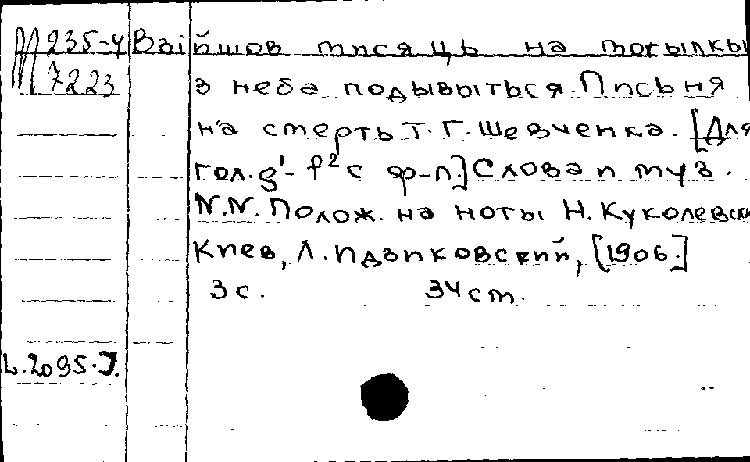 М 235-4 Взійшов мисяць на могылкы
7223 з неба подывыться. Письня
на смерть Т. Г. Шевченка. [Для
гол. g¹- f² с ф-п.] Слова и муз.
N.N. Полож. на ноты Н. Куколевск
Киев, Л. Идзиковский, [1906.]
3 с. 34 см.
L.2095.J.